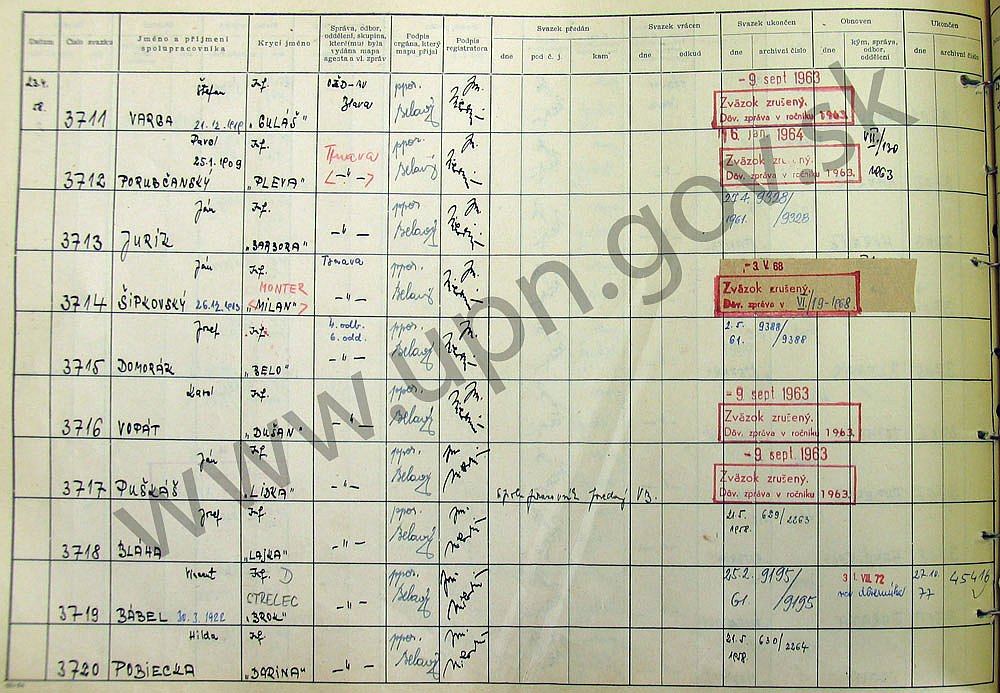 Datum
Číslo svazku
Jméno a příjmení
spolupracovníka
Krycí jméno
Správa, odbor,
oddělení, skupina,
kterému byla
vydána mapa
agenta a vl. zpráv
Podpis
orgána, který
mapu přijal
Podpis
registrátora
Svazek předán
dne
pod č. j.
kam
Svazek vrácen
dne
odkud
Svazek ukončen
dne
archivní číslo
Obnoven
kým, správa,
odbor,
oddělení
Ukončen
dne
archivní číslo
23.4.
58.
3711
Štefan
VARGA 21.12.1919
Inf.
"GULÁŠ"
Ilava
ppor.
Belavý
- 9 sept 1963
Zväzok zrušený.
Dôv. zpráva v ročníku 1963.
3712
Pavol
25.1.1909
PORUBČANSKÝ
Inf.
"PLEVA"
Trnava
- " -
ppor.
Belavý
16. jan. 1964
Zväzok zrušený.
Dôv. zpráva v ročníku 1963.
VII./130
1963
3713
Ján
JURÍK
Inf.
"BARBORA"
- " -
ppor.
Belavý
27.4.
1961.
9328/
9328
3714
Ján
ŠÍPKOVSKÝ 26.12.1903
Inf.
MONTER
"MILAN"
Trnava
- " -
ppor.
Belavý
- 3. V. 68
Zväzok zrušený.
Dôv. zpráva v VI./19-1968.
3715
Jozef
DOMORÁK
Inf.
"BELO"
4. odb.
6. odd.
- " -
ppor.
Belavý
2.5.
61.
9388/
9388
3716
Karol
VOPÁT
Inf.
"DUŠAN"
- " -
ppor.
Belavý
- 9 sept 1963
Zväzok zrušený.
Dôv. zpráva v ročníku 1963.
3717
Ján
PUŠKÁŠ
Inf.
"LÍDKA"
- " -
ppor.
Belavý
spolupracovník predaný VB.
- 9 sept. 1963
Zväzok zrušený.
Dôv. zpráva v ročníku 1963.
3718
Jozef
BLAHA
Inf.
"LAJKA"
- " -
ppor.
Belavý
21.5.
1958.
629/2263
3719
Vincent
BÁBEL 30.3.1922
Inf. D
STRELEC
"BROK"
- " -
ppor.
Belavý
25.2.
61.
9195/
9195
3 1. VIII. 72
27.10.
77
45416
3720
Hilda
POBIECKA
Inf.
"DARINA"
- " -
ppor.
Belavý
21.5.
1958.
630/2264
www.upn.gov.sk